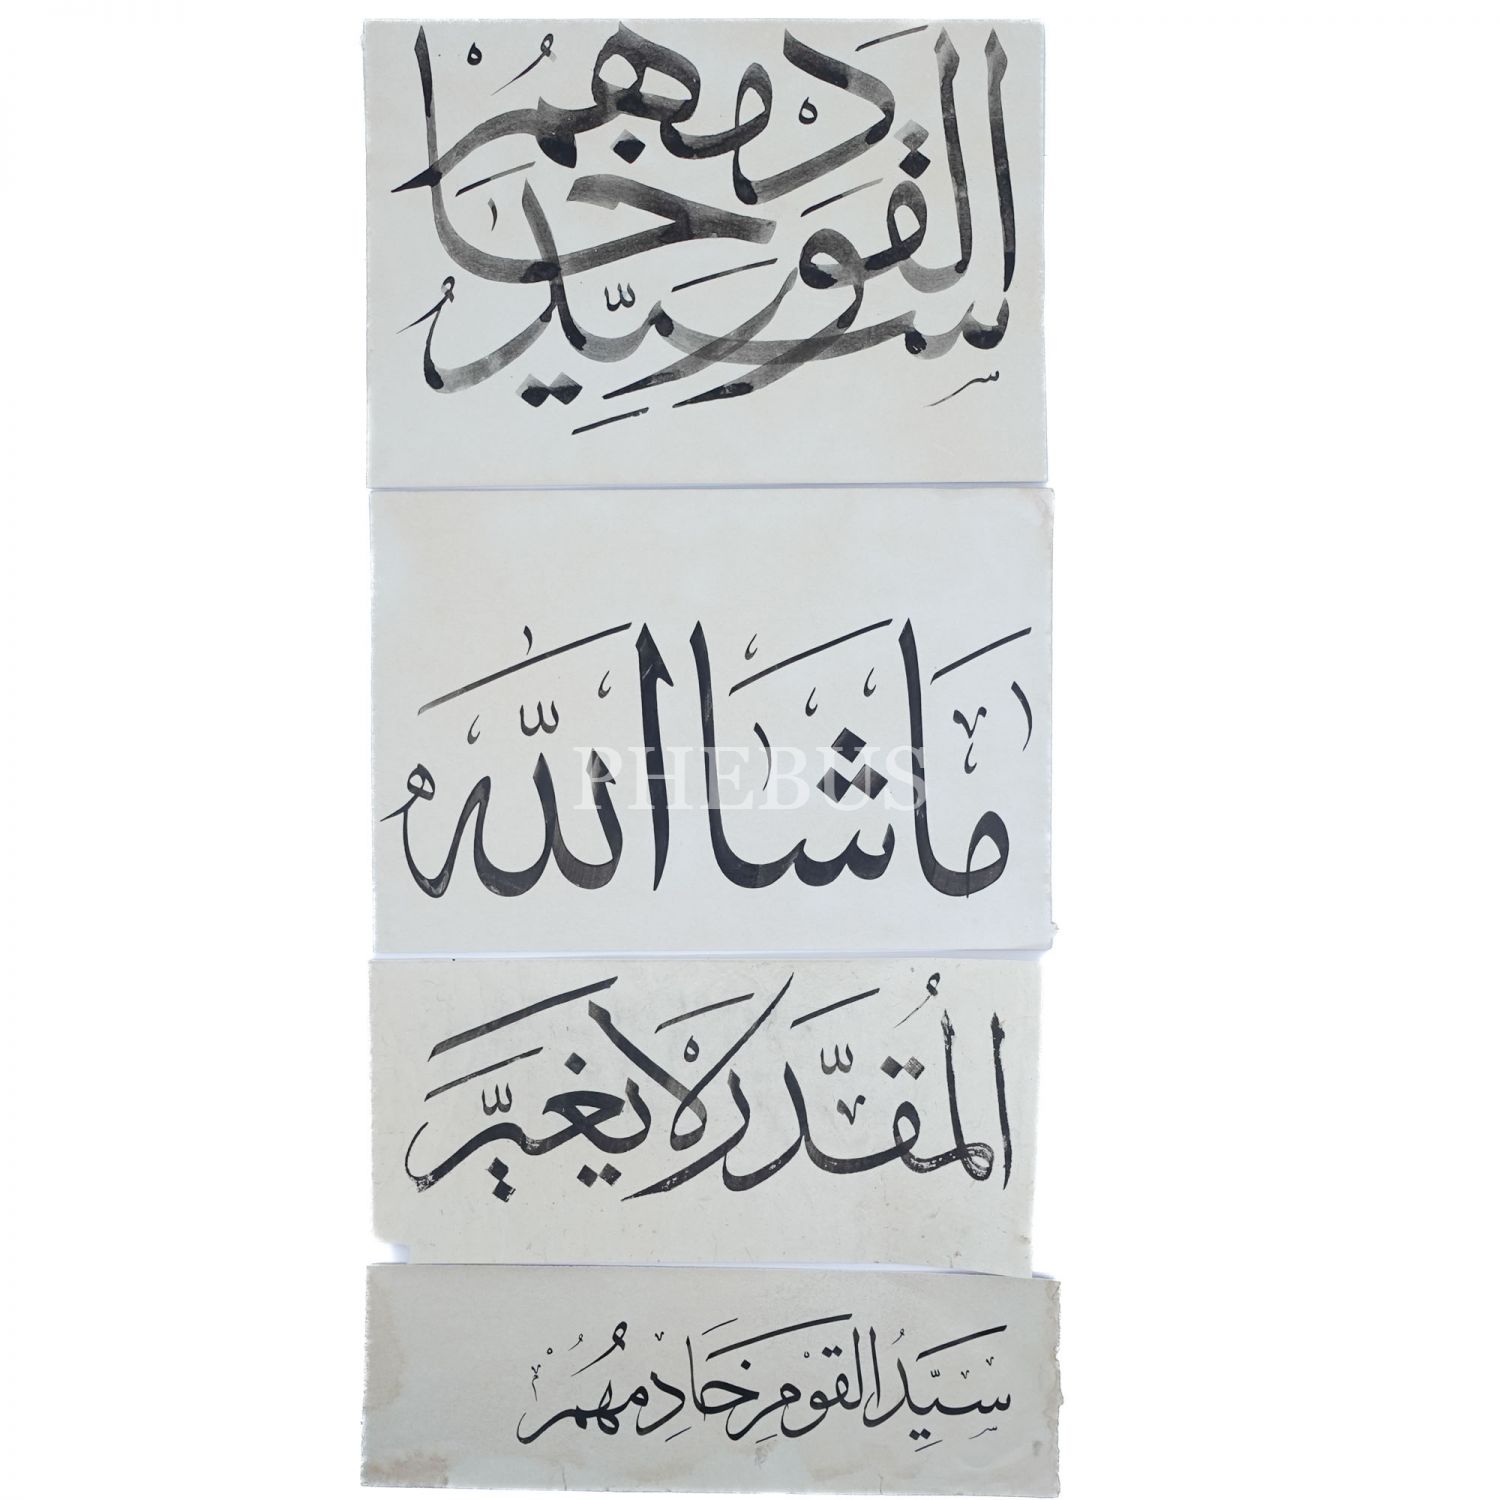 سَيِّدُ الْقَوْمِ خَادِمُهُمْ
مَا شَا اللّٰه
PHEBUS
الْمُقَدَّرْ لَا يُغَيَّرْ
سَيِّدُ الْقَوْمِ خَادِمُهُمْ